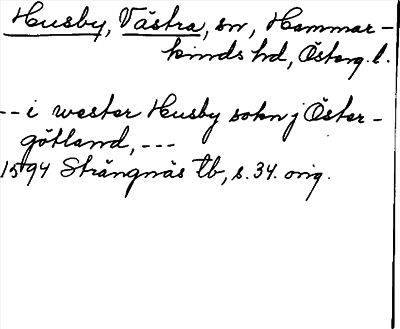 Husby, Västra, sn, Hammar-
kinds hd, Österg. l.
-- i wester Husby sokn j Öster-
götland, ---
1594 Strängnäs tb, s. 34. orig.